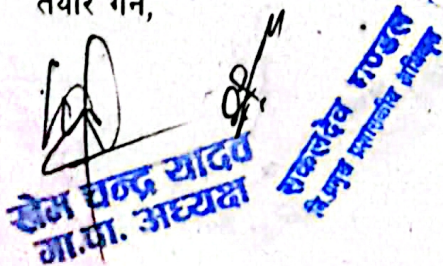 तयार गर्ने,
खेम चन्द्र यादव
गा.पा. अध्यक्ष
मण्डल
नि.प्रमुख प्रशासकीय अधिकृत